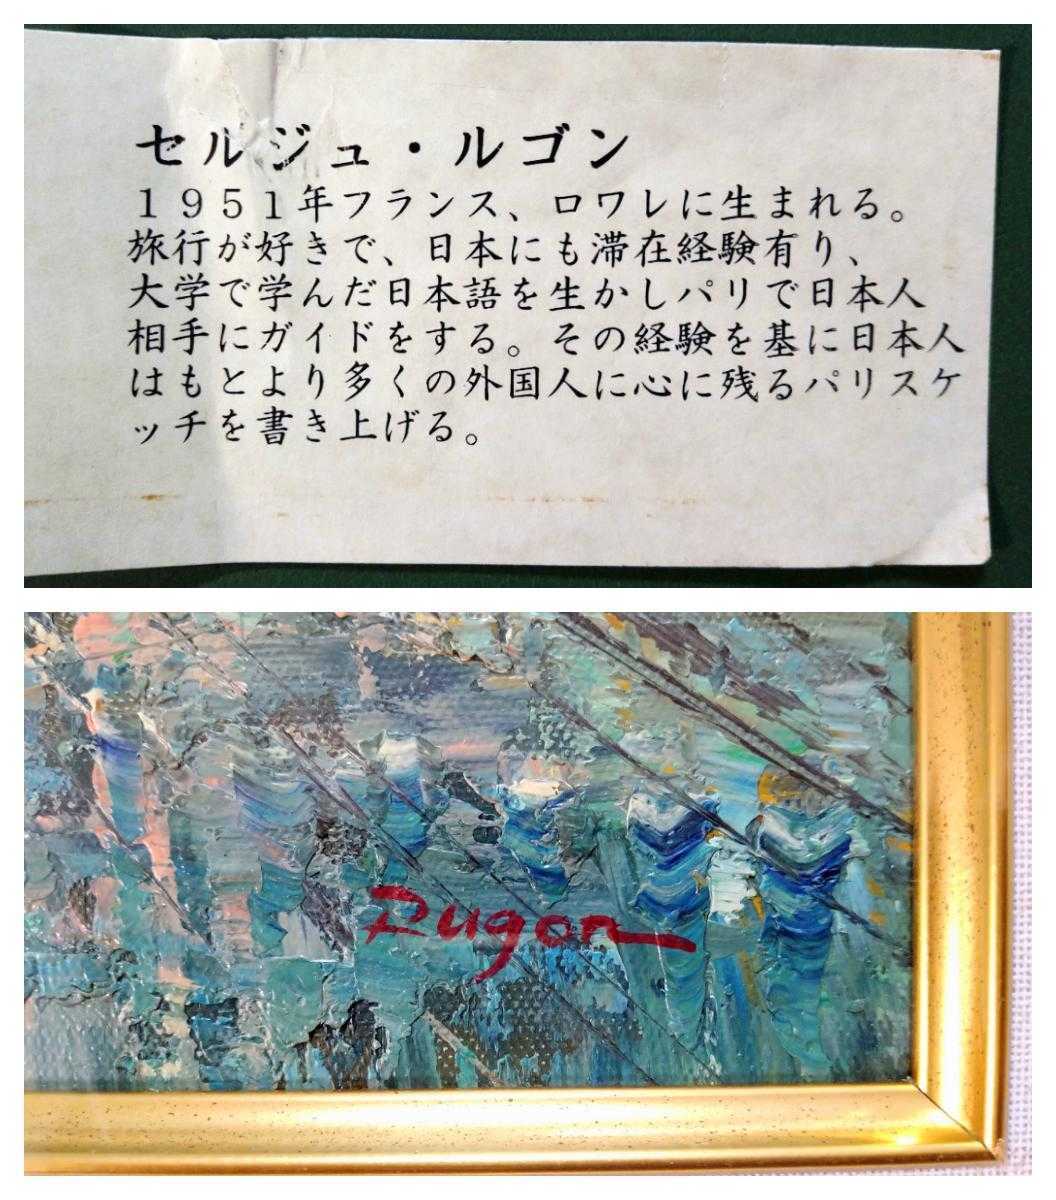 セルジュ・ルゴン
１９５１年フランス、ロワレに生まれる。
旅行が好きで、日本にも滞在経験有り、
大学で学んだ日本語を生かしパリで日本人
相手にガイドをする。その経験を基に日本人
はもとより多くの外国人に心に残るパリスケ
ッチを書き上げる。
Rugon